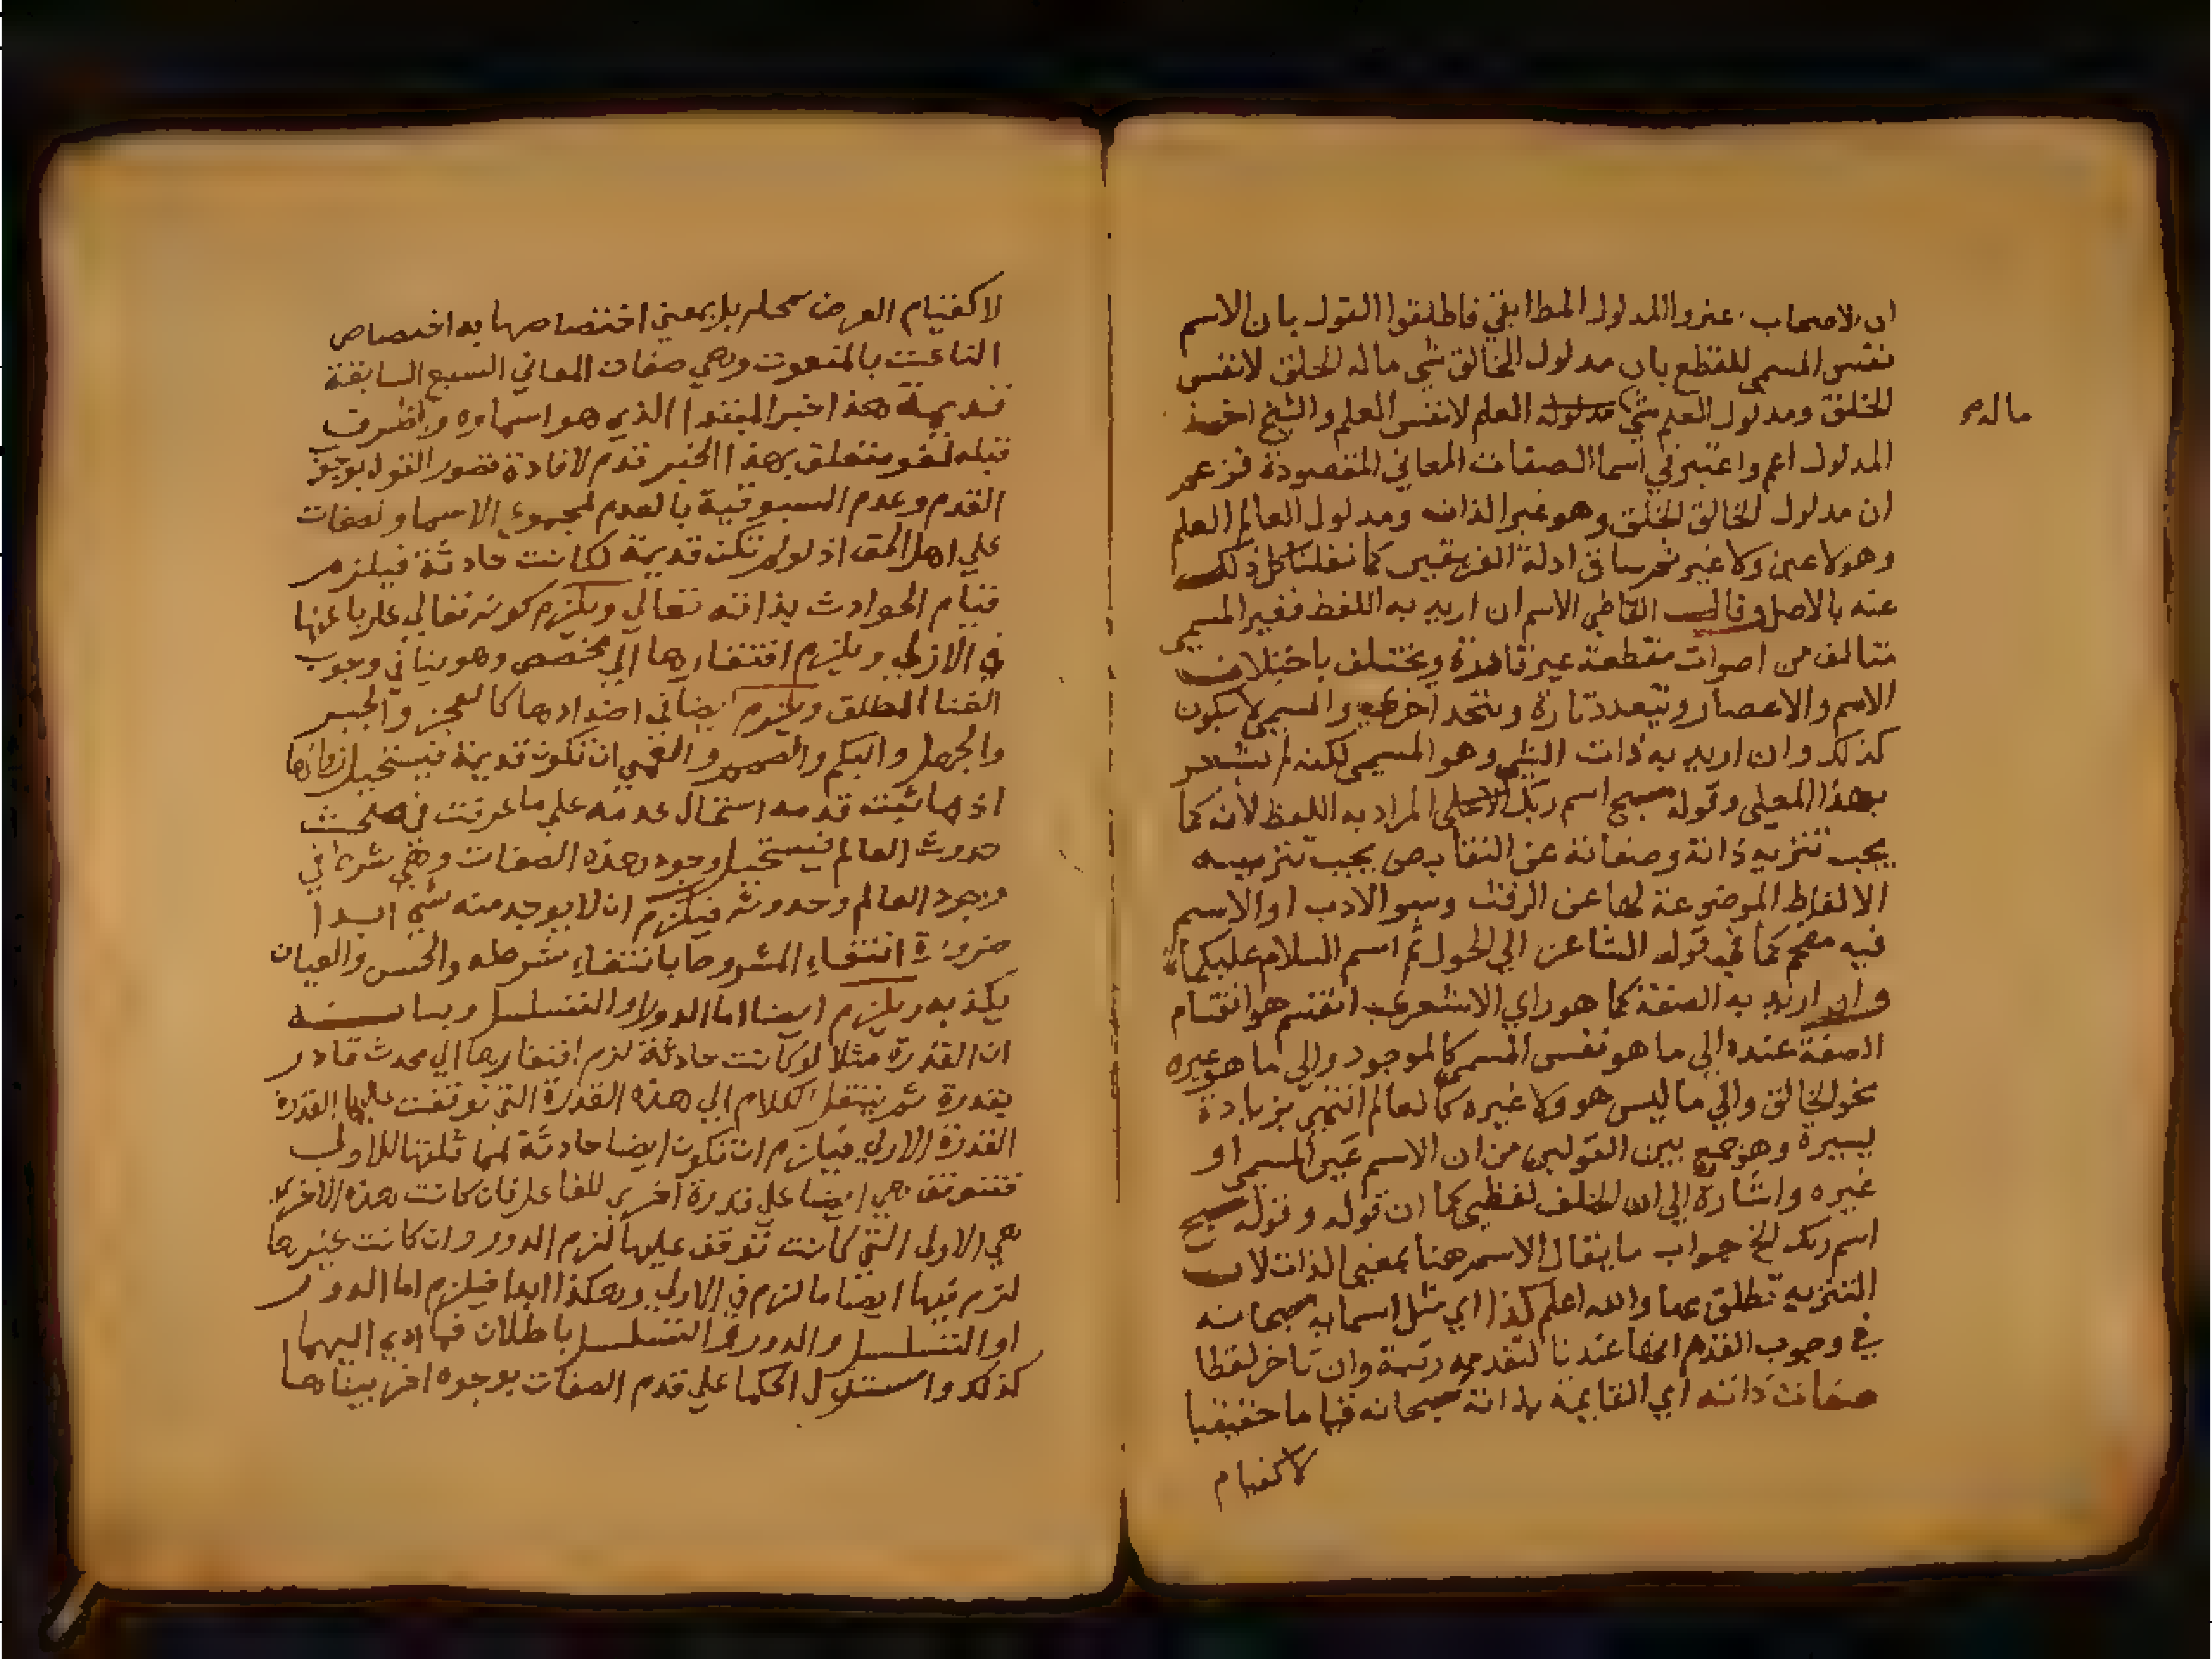 ان الاصحاب اعتبروا المدلول المطابقي فاطلقوا القول بان الاسم
نفس المسمي للقطع بان مدلول الخالق شي ماله الخلق لانفس
الخلق ومدلول العلم شي مدلوله العلم لانفس العلم والشيخ اخذ
ماله
المدلول اعم واعتبر في اسما الصفات المعاني المقصودة فزعم
ان مدلول الخالق الخلق وهو غير الذات ومدلول العالم العلم
وهو لا عين ولا غير ثم ساق ادلة الفريقين كما نقلنا كل ذلك
عنه بالاصل وقال القاضي الاسم ان اريد به اللفظ فغير المسمي
متالف من اصوات مقطعة غير قاهرة ويختلف باختلاف
الاسم والاعصار ويتعدد تارة ويتحد اخري والمسمي لا يكون
كذلك وان اريد به ذات الشي وهو المسمي لكنه لم يشتهر
بهذا المعني وقوله سبح اسم ربك الاعلي المراد به اللفظ لانه كما
يجب تنزيه ذاته وصفاته عن النقايص يجب تنزيه
الالفاظ الموضوعة لها عن الرفث وسو الادب او الاسم
فيه مقحم كما في قوله الشاعر الي الحول ثم اسم السلام عليكما
وان اريد به الصفة كما هو راي الاشعري انقسم هو انقسام
الصفة عنده الي ما هو نفس المسمي كالموجود والي ما هو غيره
نحو الخالق والي ما ليس هو ولا غيره كالعالم انتهي بزيادة
يسيرة وهو جمع بين القولين من ان الاسم عين المسمي او
غيره واشارة الي ان الخلف لفظي كما ان قوله وقوله سبح
اسم ربك الخ جواب ما يقال الاسم هنا بمعني الذات لان
التنزيه تطلق عما والله اعلم كذا اي مثل اسمايه سبحانه
في وجوب القدم لها عندنا لتقدمه رتبة وان تاخر لفظا
صفات ذاته اي القايمة بذاته سبحانه قياما حقيقيا
لا كقيام
لا كقيام العرض بمحله بل بمعني اختصاصها به اختصاص
الناعت بالمنعوت وهي صفات المعاني السبع السابقة
قديمة هذا خبر المبتدا الذي هو اسماوه والظرف
قبله لغو متعلق بهذا الخبر قدم لافادة قصور القول بوجوب
القدم وعدم المسبوقية بالعدم لمجموع الاسما والصفات
علي اهل الحق اذ لو لم تكن قديمة لكانت حادثة فيلزم
قيام الحوادث بذاته تعالي ويلزم كونه تعالي عاريا عنها
في الازل ويلزم افتقارها الي مخصص وهو ينافي وجوب
الغنا المطلق ويلزم ايضا في اضدادها كالعجز والجبر
والجهل والبكم والصمم والعمي ان تكون قديمة فيستحيل زوالها
اذ ما ثبت قدمه استحال عدمه علي ما عرفت في مبحث
حدوث العالم فيستحيل وجود هذه الصفات وهي شرط في
وجود العالم وحدوثه فيلزم ان لا يوجد منه شي ابدا
ضرورة انتفاء المشروط بانتفاء شرطه والحس والعيان
يكذبه ويلزم ايضا اما الدور او التسلسل وبيانه
ان القدرة مثلا لو كانت حادثة لزم افتقارها الي محدث قادر
بقدرة ثم ينتقل الكلام الي هذه القدرة التي توقفت عليها القدرة
القدرة الاولي فيلزم ان تكون ايضا حادثة لمماثلتها للاولي
فتتوقف هي ايضا علي قدرة اخري للفاعل فان كانت هذه الاخري
هي الاولي التي كانت توقف عليها لزم الدور وان كانت غيرها
لزم فيها ايضا ما لزم في الاولي وهكذا ابدا فيلزم اما الدور
او التسلسل والدور و التسلسل باطلان فما ادي اليهما
كذلك واستدل الحكما علي قدم الصفات بوجوه اخر بيناها